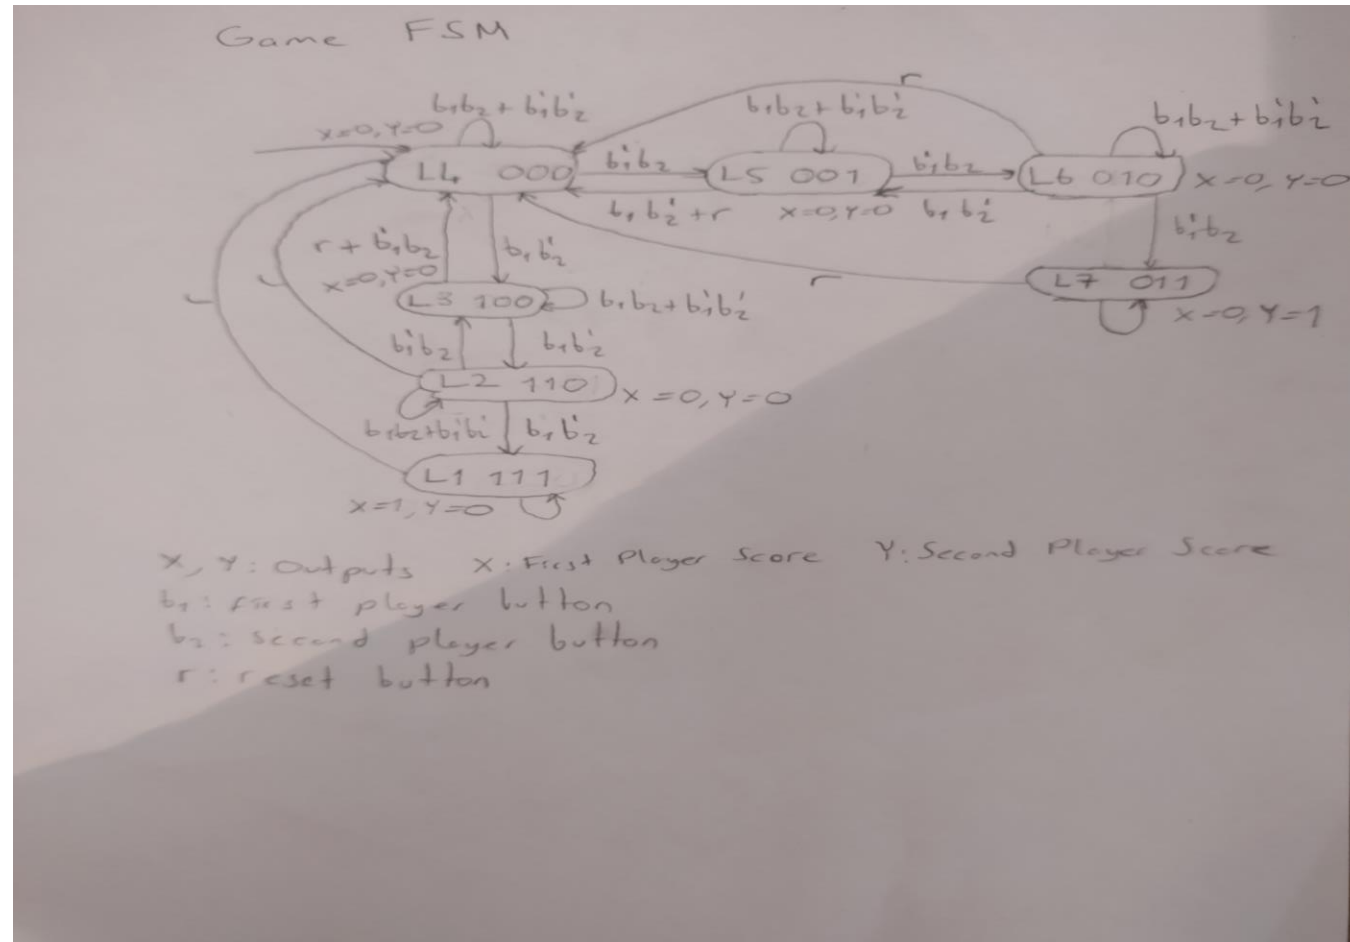 Game FSM
r
b₁b₂ + b₁'b₂'
b₁b₂ + b₁'b₂'
b₁b₂ + b₁'b₂'
x=0, Y=0
L4 000
b₁'b₂
L5 001
b₁'b₂
L6 010
x=0, Y=0
b₁b₂' + r
x=0, Y=0
b₁b₂'
r + b₁'b₂
x=0, Y=0
b₁b₂'
b₁'b₂
r
L7 011
x=0, Y=1
L3 100
b₁b₂ + b₁'b₂'
b₁'b₂
b₁b₂'
L2 110
x=0, Y=0
b₁b₂'
L1 111
x=1, Y=0
X, Y: Outputs X: First Player Score Y: Second Player Score
b₁: first player button
b₂: second player button
r: reset button